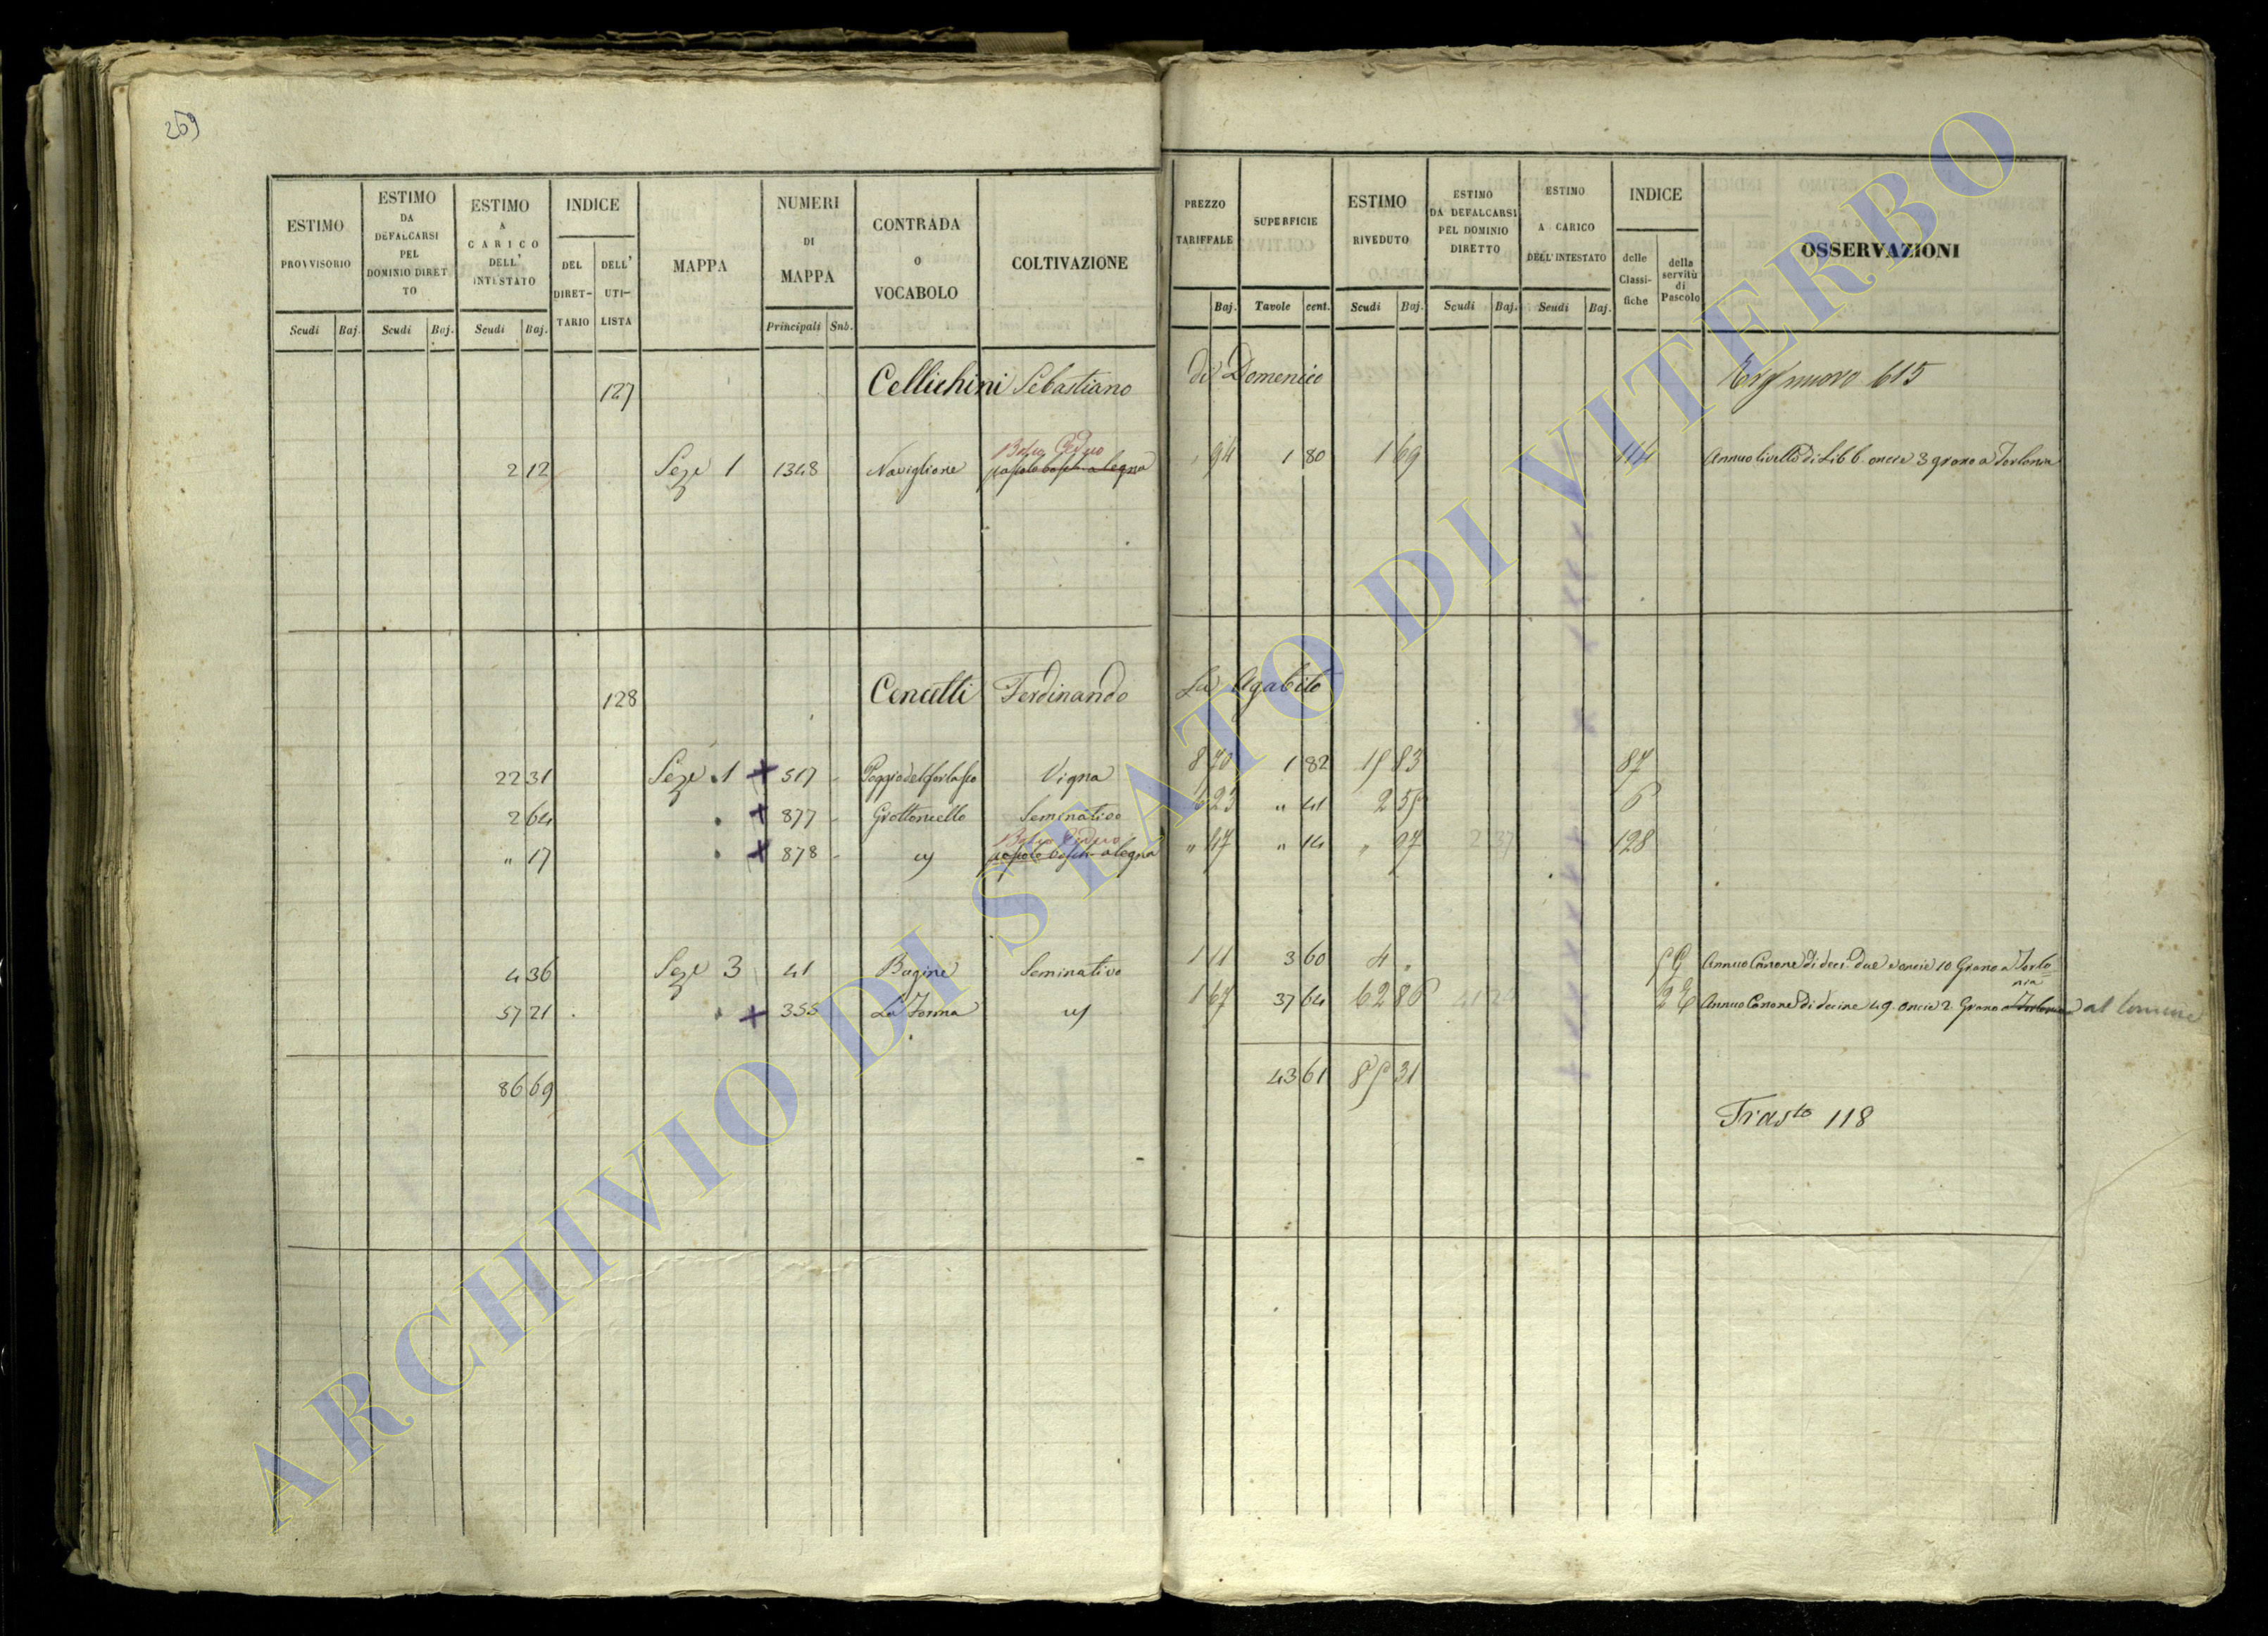 269
ESTIMO PROVVISORIO
Scudi Baj.
ESTIMO DA DEFALCARSI PEL DOMINIO DIRETTO
Scudi Baj.
ESTIMO A CARICO DELL' INTESTATO
Scudi Baj.
INDICE
DEL DIRET-TARIO
DELL' UTI-LISTA
MAPPA
NUMERI DI MAPPA
Principali Sub.
CONTRADA O VOCABOLO
COLTIVAZIONE
PREZZO TARIFFALE
Baj.
SUPERFICIE
Tavole cent.
ESTIMO RIVEDUTO
Scudi Baj.
ESTIMO DA DEFALCARSI PEL DOMINIO DIRETTO
Scudi Baj.
ESTIMO A CARICO DELL'INTESTATO
Scudi Baj.
INDICE
delle Classi-fiche
della servitù di Pascolo
OSSERVAZIONI
127 Cellichini Sebastiano di Domenico nuovo 615
Bosco Ceduo
2 12 Seze 1 1348 Naviglione pascolo bosch. a legna 94 1 80 1 69 114 Annuo livello di Lib 6 oncie 3 grano a Torlonia
128 Cencelli Ferdinando Agabito
22 31 Seze 1 517 Vigna 8 70 1 82 15 83 87
2 64 877 Grottoncello Seminativo 23 " 41 2 55 6
Bosco Ceduo
" 17 878 pascolo bosch. a legna " 47 " 14 " 07 2 37 128
4 36 Seze 3 41 Bagine Seminativo 1 11 3 60 4 " Annuo Canone di deci. due e oncie 10 Grano a Torlonia
57 21 355 La Forma 1 67 37 64 62 86 41 29 Annuo Canone di decine 49 oncie 2 Grano a Torlonia al Comune
86 69 43 61 85 31
Trasto 118
ARCHIVIO DI STATO DI VITERBO